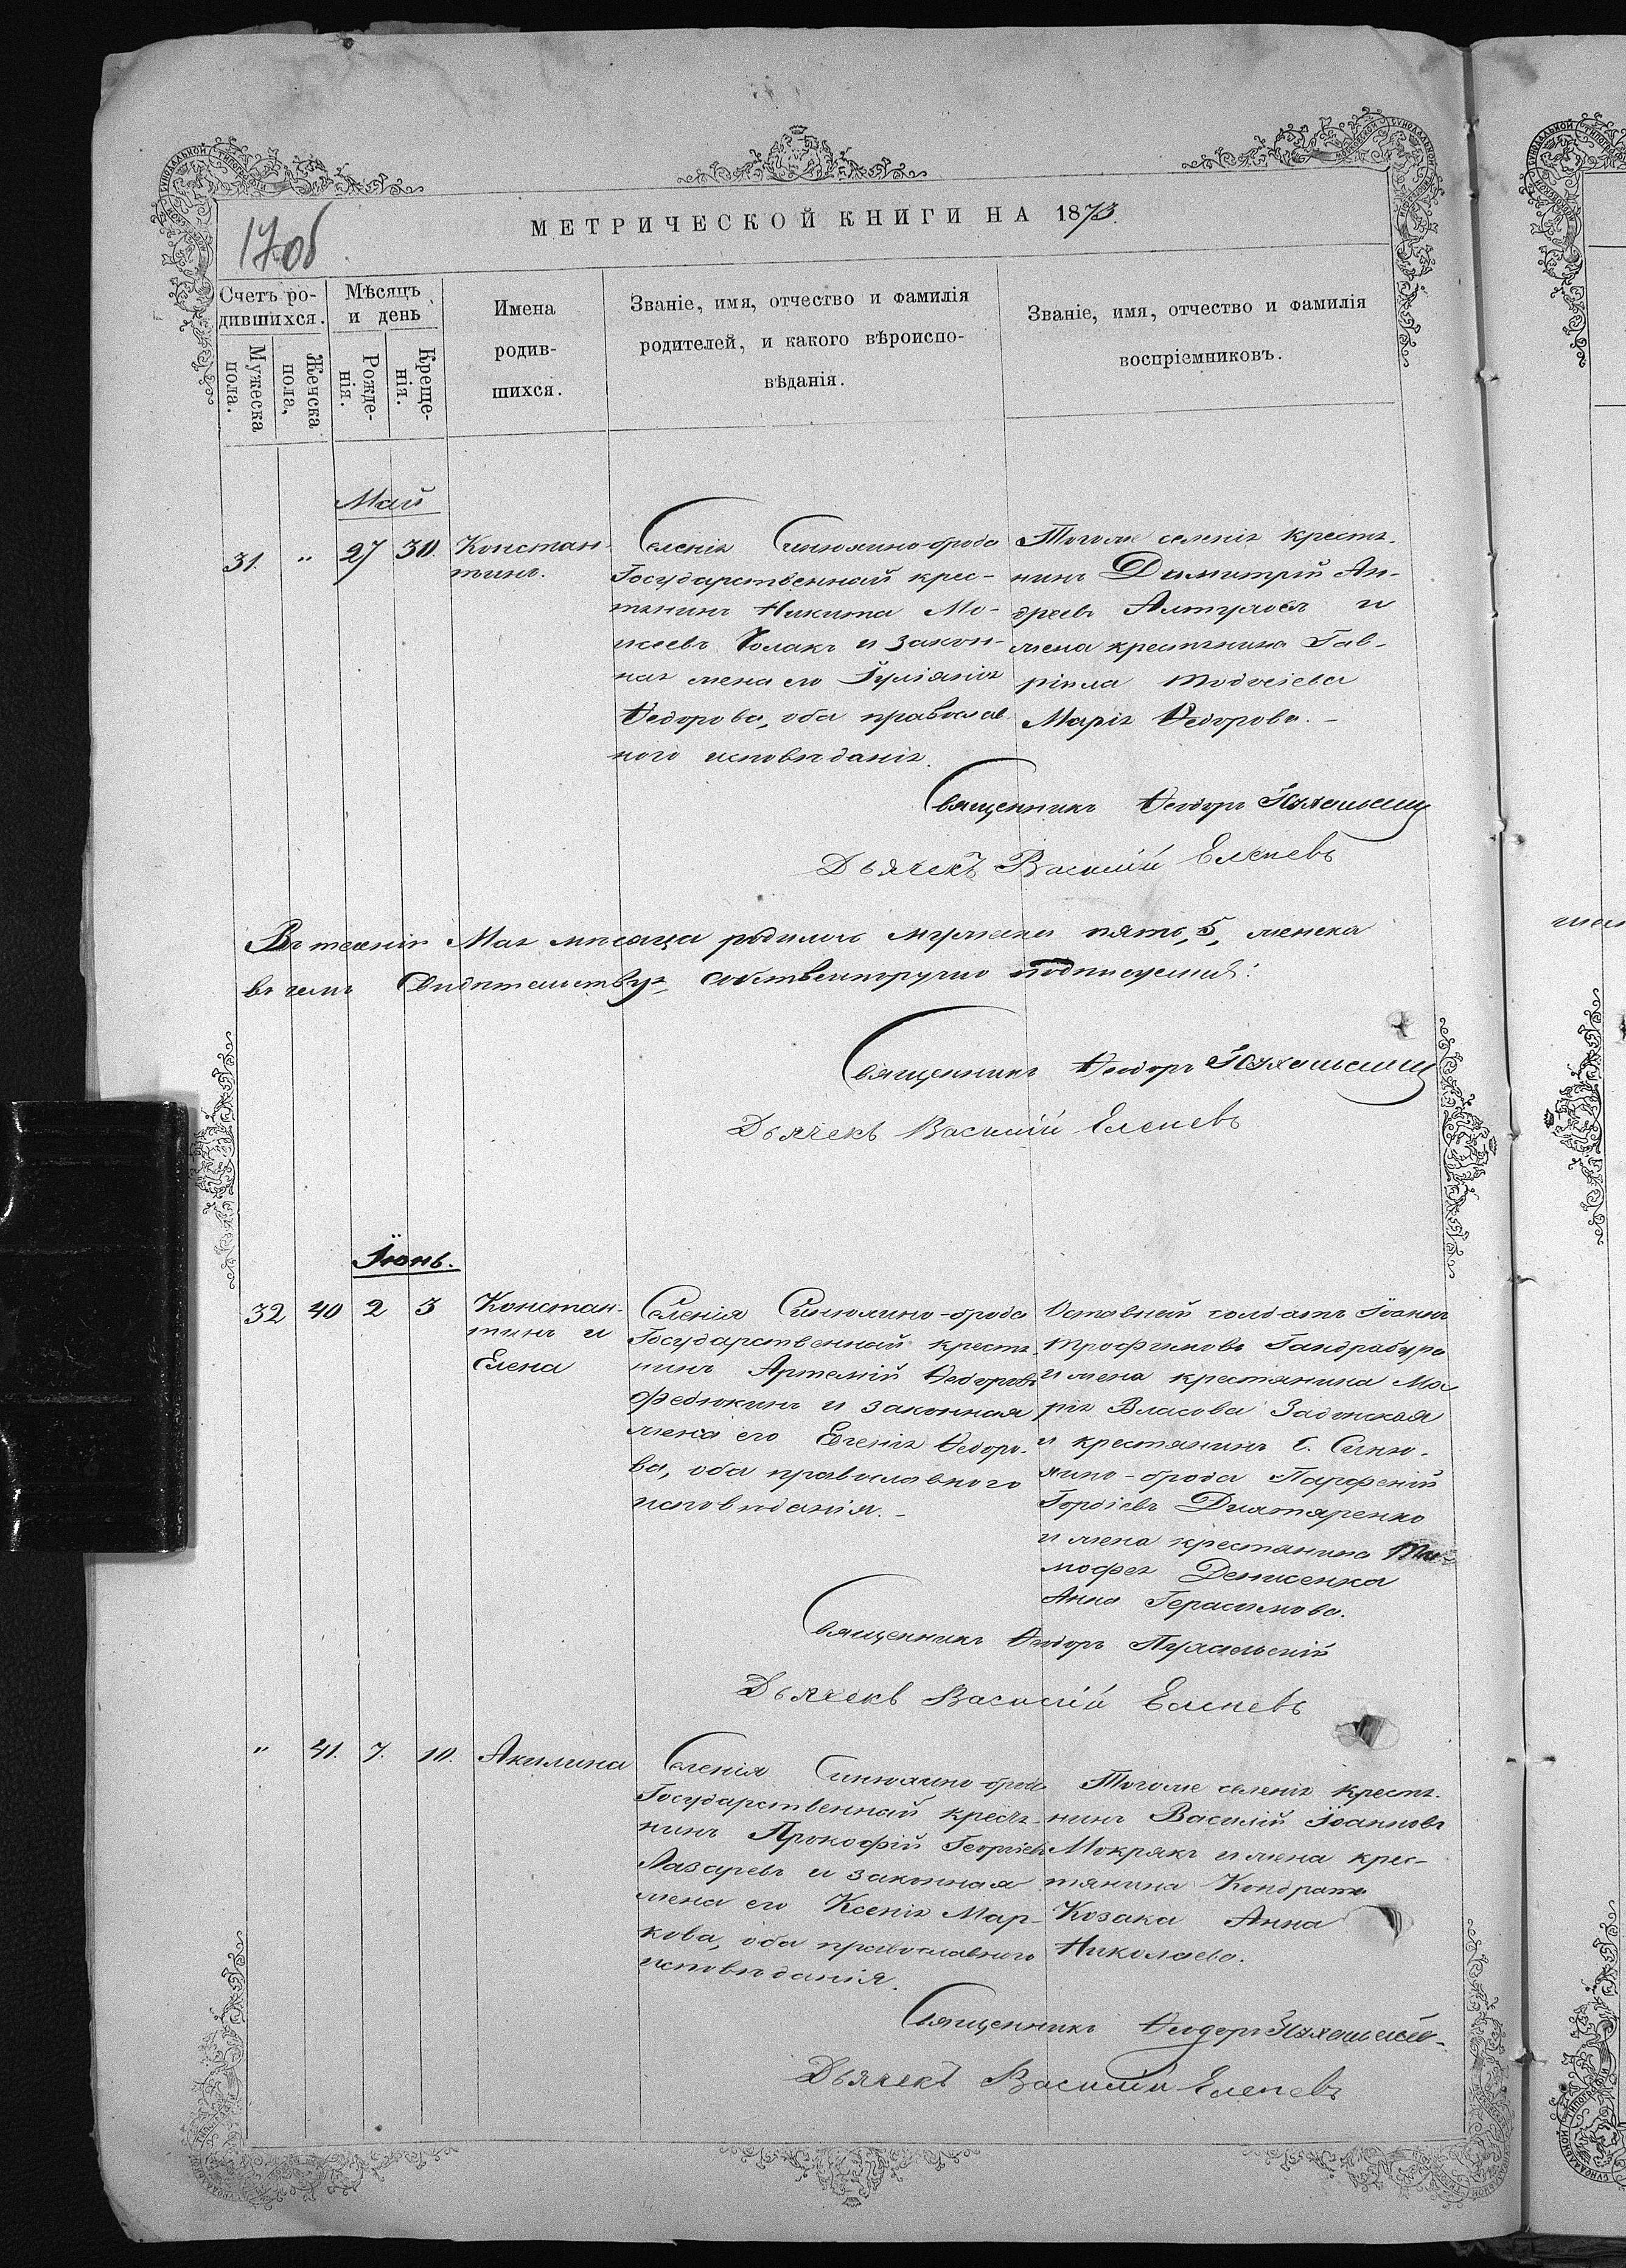 МЕТРИЧЕСКОЙ КНИГИ НА 1873.
17об
Счетъ ро-
дившихся.
Мужеска
пола.
Женска
пола,
Мѣсяцъ
и день
Рожде-
нія.
Креще-
нія.
Имена
родив-
шихся.
Званіе, имя, отчество и фамилія
родителей, и какого вѣроиспо-
вѣданія.
Званіе, имя, отчество и фамилія
воспріемниковъ.
Май
31. „ 27 30.
Констан-
тинъ.
Селенія Синюхино-брода
Государственный крес-
тянинъ Никита Мо-
исеевъ и закон-
ная жена его Іуліанія
Ѳедорова, оба православ
ного исповѣданія.
Тогоже селенія крестя-
нинъ Димитрій Ан-
дреевъ Алтуховъ и
жена крестянина Гав-
ріила Мария Ѳедорова.-
Священникъ Ѳеодоръ Пухальскій
Дьячекъ Василій Еленевъ
Въ теченіи Мая мѣсяца родилось мужеска пять, 5, женска
въ чемъ Свидѣтельствуя собственноручно подписуемся:
Священникъ Ѳеодоръ Пухальскій
Дьячекъ Василій Еленевъ
Іюнь.
32 40 2 3
Констан-
тинъ и
Елена
Селенія Синюхино-брода
Государственный крестя-
нинъ Артемій Ѳедоровъ
Федюкинъ и законная
жена его Евгенія Ѳедоро-
ва, оба православного
исповѣданія.-
Отставный солдатъ Іоаннъ
Трофимовъ Гандрабура
и жена крестянина Ма
рія Власова Задонская
и крестянинъ С. Синю-
хино-брода Парфеній
Гордіевъ Дихтяренко
и жена крестянина Ти-
мофея Денисенка
Анна Герасимова.
Священникъ Ѳеодоръ Пухальскій
Дьячекъ Василій Еленевъ
„ 41. 7. 10. Акилина
Селенія Синюхино-брода
Государственный крестя-
нинъ Прокофій Георгіевъ
Лазаревъ и законная
жена его Ксенія Мар-
кова, оба православного
исповѣданія.
Тогоже селенія крестя-
нинъ Василій Іоанновъ
Мокрякъ и жена крес-
тянина Кондрата
Козака Анна
Николаева.
Священникъ Ѳеодоръ Пухальскій
Дьячекъ Василій Еленевъ